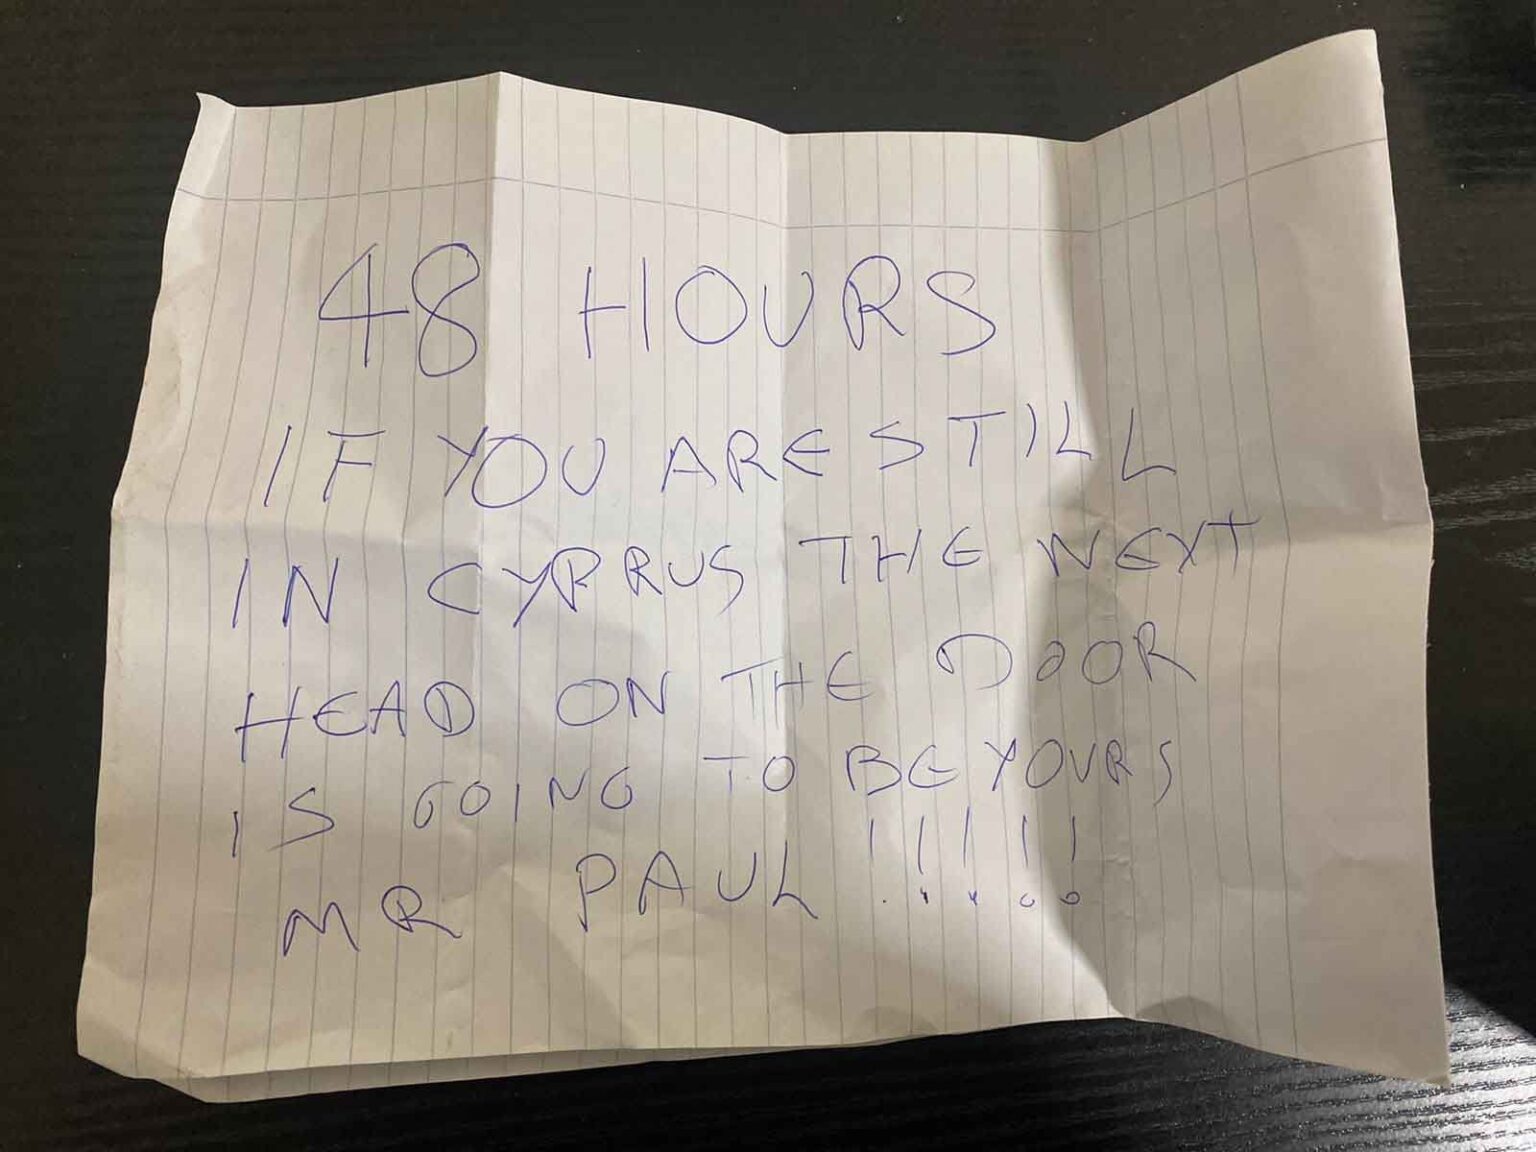 48 HOURS
IF YOU ARE STILL
IN CYPRUS THE NEXT
HEAD ON THE DOOR
IS GOING TO BE YOURS
MR PAUL !!!!!